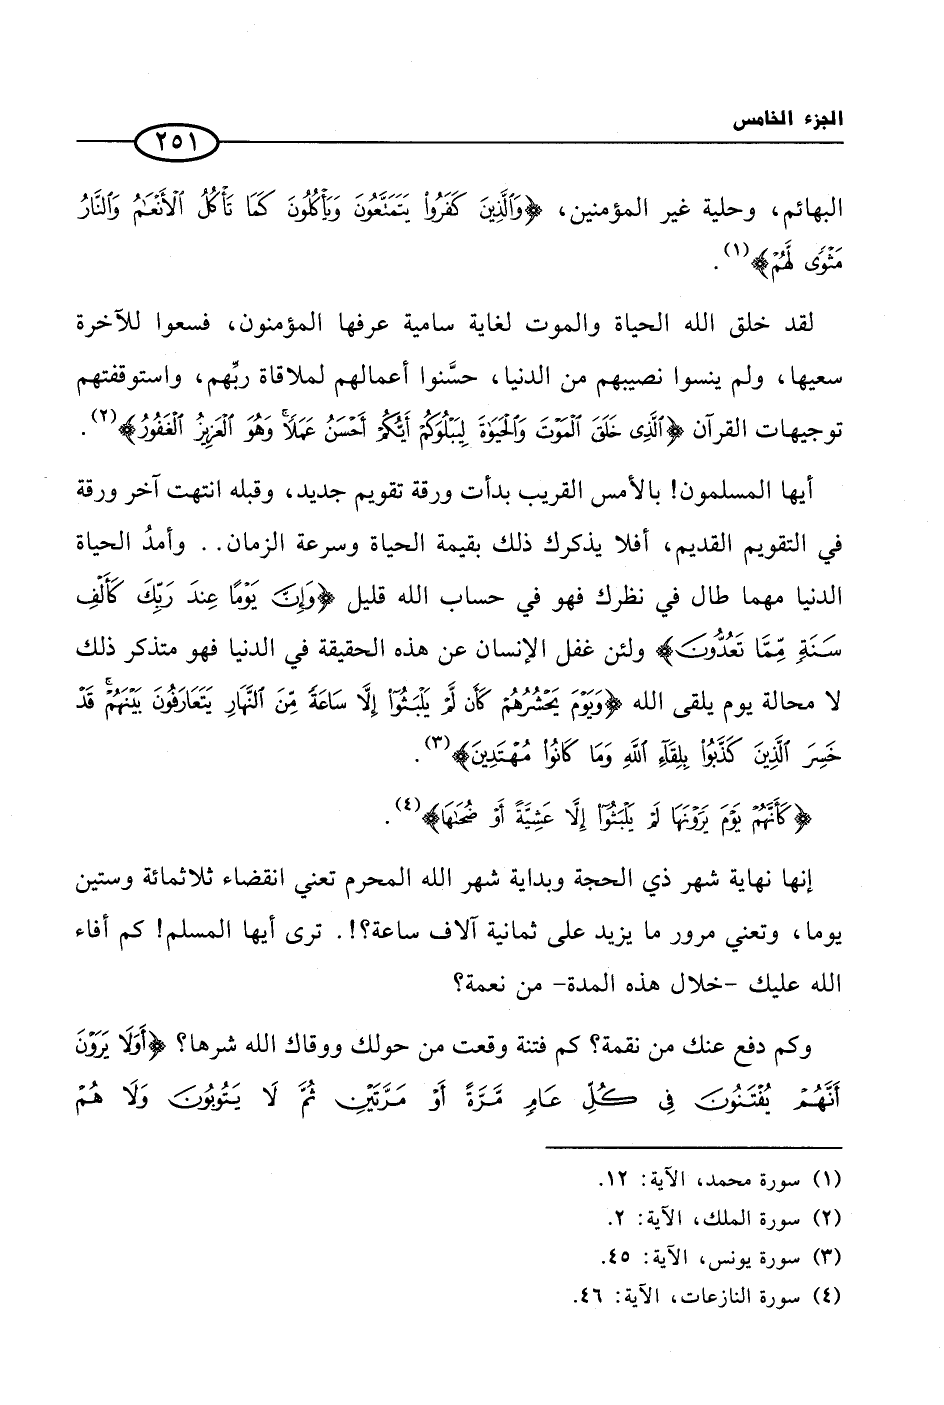 الجزء الخامس
٢٥١
البهائم، وحلية غير المؤمنين، ﴿وَٱلَّذِينَ كَفَرُوا۟ يَتَمَتَّعُونَ وَيَأْكُلُونَ كَمَا تَأْكُلُ ٱلْأَنْعَـٰمُ وَٱلنَّارُ
مَثْوًى لَّهُمْ﴾(١).
لقد خلق الله الحياة والموت لغاية سامية عرفها المؤمنون، فسعوا للآخرة
سعيها، ولم ينسوا نصيبهم من الدنيا، حسَّنوا أعمالهم لملاقاة ربِّهم، واستوقفتهم
توجيهات القرآن ﴿ٱلَّذِى خَلَقَ ٱلْمَوْتَ وَٱلْحَيَوٰةَ لِيَبْلُوَكُمْ أَيُّكُمْ أَحْسَنُ عَمَلًا ۚ وَهُوَ ٱلْعَزِيزُ ٱلْغَفُورُ﴾(٢).
أيها المسلمون! بالأمس القريب بدأت ورقة تقويم جديد، وقبله انتهت آخر ورقة
في التقويم القديم، أفلا يذكرك ذلك بقيمة الحياة وسرعة الزمان.. وأمدُ الحياة
الدنيا مهما طال في نظرك فهو في حساب الله قليل ﴿وَإِنَّ يَوْمًا عِندَ رَبِّكَ كَأَلْفِ
سَنَةٍ مِّمَّا تَعُدُّونَ﴾ ولئن غفل الإنسان عن هذه الحقيقة في الدنيا فهو متذكر ذلك
لا محالة يوم يلقى الله ﴿وَيَوْمَ يَحْشُرُهُمْ كَأَن لَّمْ يَلْبَثُوٓا۟ إِلَّا سَاعَةً مِّنَ ٱلنَّهَارِ يَتَعَارَفُونَ بَيْنَهُمْ ۚ قَدْ
خَسِرَ ٱلَّذِينَ كَذَّبُوا۟ بِلِقَآءِ ٱللَّهِ وَمَا كَانُوا۟ مُهْتَدِينَ﴾(٣).
﴿كَأَنَّهُمْ يَوْمَ يَرَوْنَهَا لَمْ يَلْبَثُوٓا۟ إِلَّا عَشِيَّةً أَوْ ضُحَىٰهَا﴾(٤).
إنها نهاية شهر ذي الحجة وبداية شهر الله المحرم تعني انقضاء ثلاثمائة وستين
يوما، وتعني مرور ما يزيد على ثمانية آلاف ساعة؟!. ترى أيها المسلم! كم أفاء
الله عليك -خلال هذه المدة- من نعمة؟
وكم دفع عنك من نقمة؟ كم فتنة وقعت من حولك ووقاك الله شرها؟ ﴿أَوَلَا يَرَوْنَ
أَنَّهُمْ يُفْتَنُونَ فِى كُلِّ عَامٍ مَّرَّةً أَوْ مَرَّتَيْنِ ثُمَّ لَا يَتُوبُونَ وَلَا هُمْ
(١) سورة محمد، الآية: ١٢.
(٢) سورة الملك، الآية: ٢.
(٣) سورة يونس، الآية: ٤٥.
(٤) سورة النازعات، الآية: ٤٦.